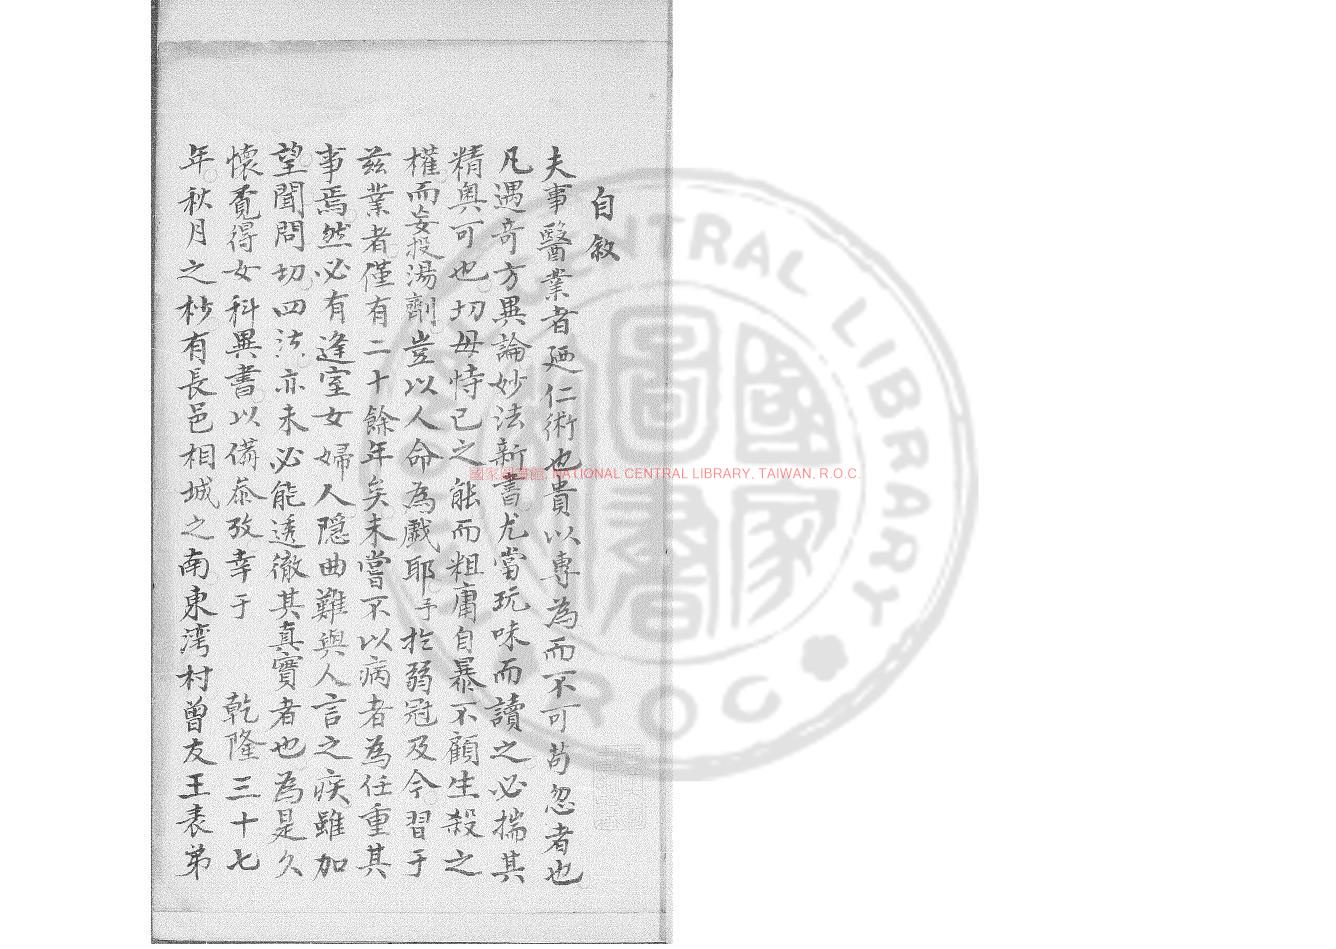 自敘
夫事醫業者廼仁術也貴以專為而不可苟忽者也
凡遇奇方異論妙法新書尤當玩味而讀之必揣其
精奧可也切毋恃己之能而粗庸自暴不顧生殺之
權而妄投湯劑豈以人命為戲耶予於弱冠及今習于
茲業者僅有二十餘年矣未嘗不以病者為任重其
事焉然必有逢室女婦人隱曲難與人言之疾雖加
望聞問切四法亦未必能透徹其真實者也為是久
懷覔得女科異書以備叅攷幸于 乾隆三十七
年秋月之杪有長邑相城之南東湾村曾友王表弟
國家圖書館 NATIONAL CENTRAL LIBRARY, TAIWAN, R.O.C.
CENTRAL LIBRARY
ROC